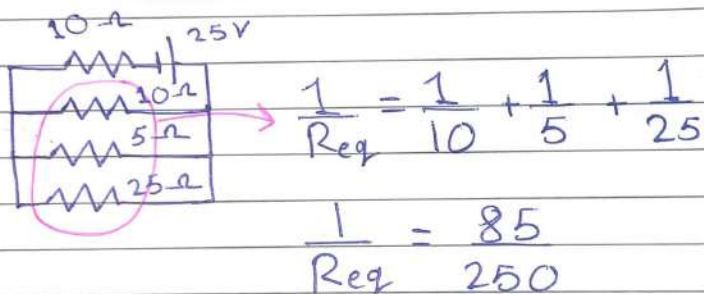 10 Ω 25V
10 Ω
5 Ω
25 Ω
1/Req = 1/10 + 1/5 + 1/25
1/Req = 85/250